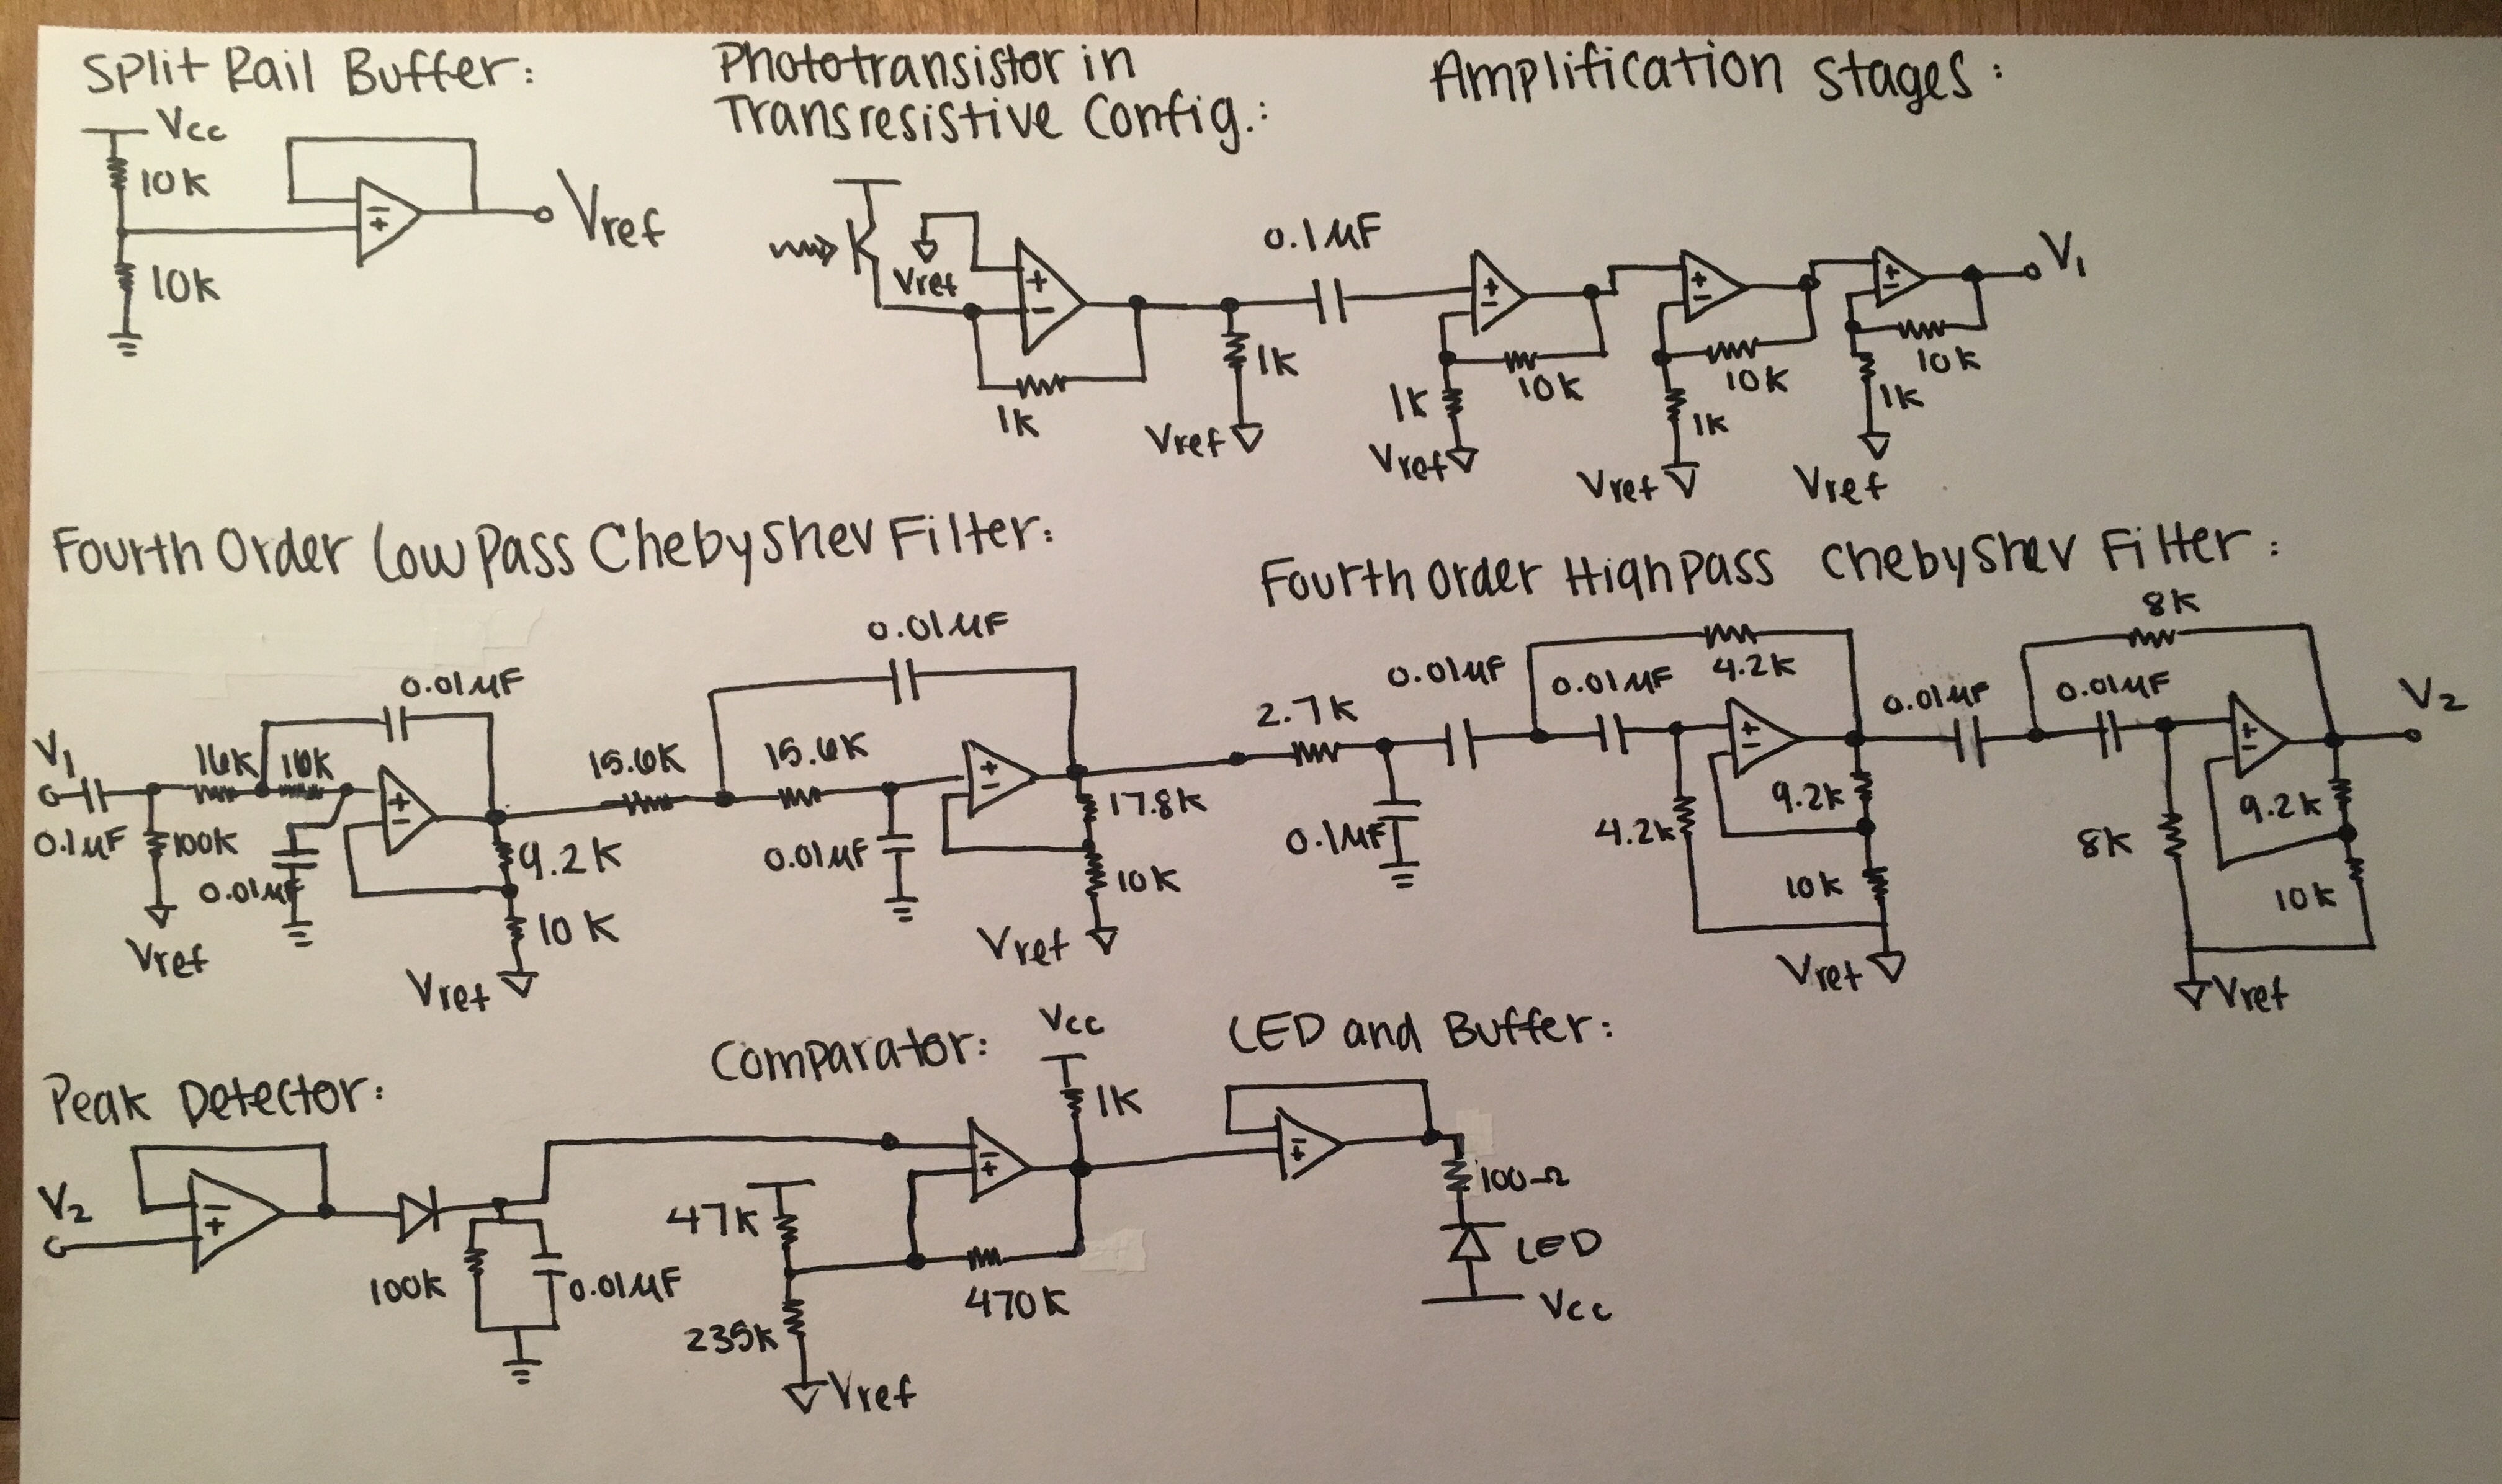 Split Rail Buffer:
Vcc
10K
10K
Vref
Phototransistor in
Transresistive Config.:
Vref
1K
1K
Vref
0.1μF
Amplification Stages:
1K
10K
Vref
10K
1K
Vref
10K
1K
Vref
V1
Fourth Order Low Pass Chebyshev Filter:
V1
0.1μF
100K
Vref
16K
16K
0.01μF
0.01μF
9.2K
10K
Vref
15.6K
15.6K
0.01μF
0.01μF
17.8K
10K
Vref
Fourth Order High Pass Chebyshev Filter:
2.7K
0.1μF
0.01μF
0.01μF
4.2K
4.2K
9.2K
10K
Vref
0.01μF
0.01μF
8K
8K
9.2K
10K
Vref
V2
Peak Detector:
V2
100K
0.01μF
Comparator:
Vcc
1K
47K
235K
470K
Vref
LED and Buffer:
100Ω
LED
Vcc